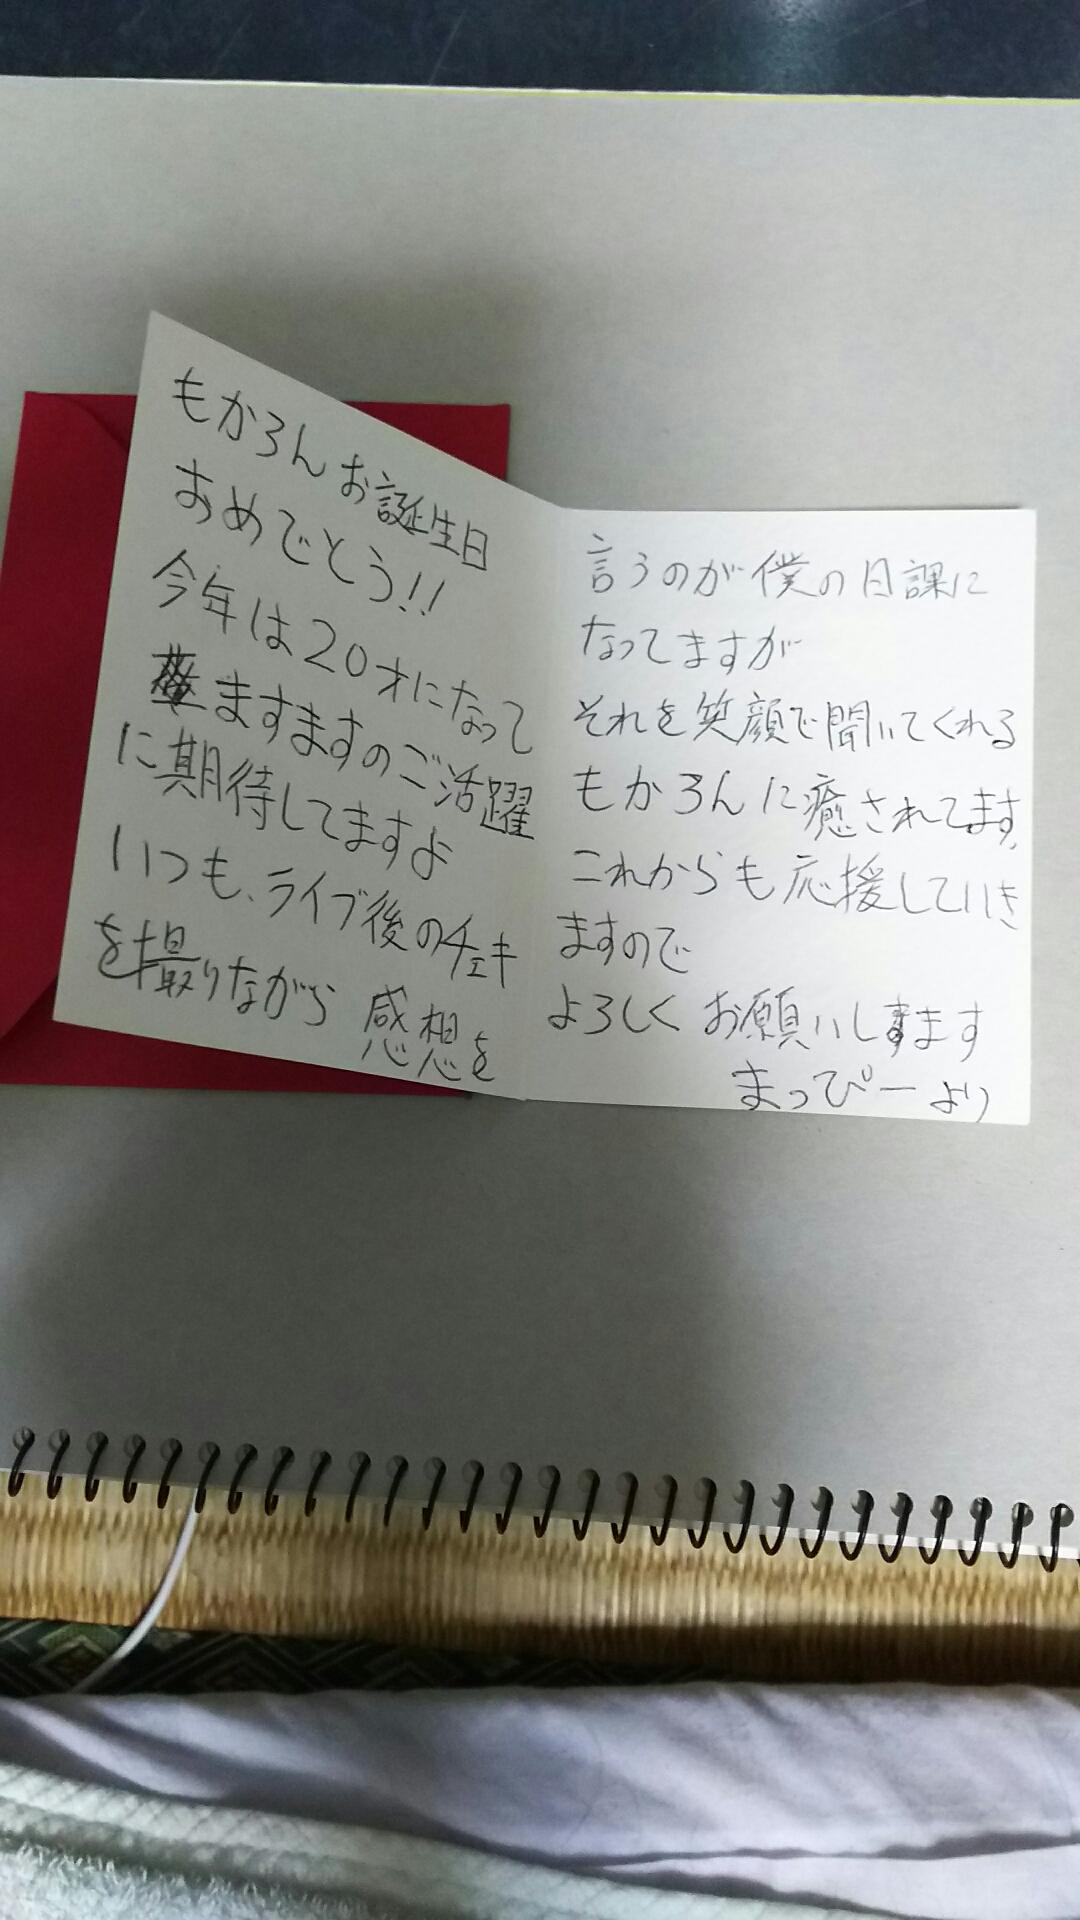 もかろんお誕生日
おめでとう!!
今年は20才になって
ますますのご活躍
に期待してますよ
いつも、ライブ後のチェキ
を撮りながら 感想を
言うのが僕の日課に
なってますが
それを笑顔で聞いてくれる
もかろんに癒されてます。
これからも応援していき
ますので
よろしく お願いします
まっぴーより